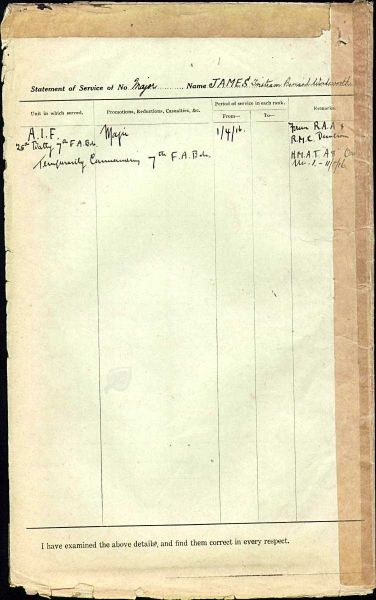 Statement of Service of No Major Name JAMES Tristram Bernard Wordsworth
Unit in which served.
Promotions, Reductions, Casualties, &c.
Period of service in each rank.
From—
To—
Remarks.
A.I.F. Major 1/4/16. From R.A.A &
25th Batty 7th F.A. Bde. R.M.C. Duntroon
Temporarily Commanding 7th F.A. Bde. H.M.A.T. A
11/5/16
I have examined the above details, and find them correct in every respect.